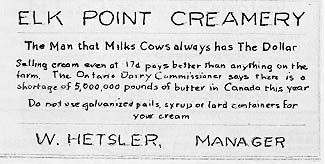 ELK POINT CREAMERY
The Man that Milks Cows always has The Dollar
Selling cream even at 17¢ pays better than anything on the
farm. The Ontario Dairy Commissioner says there is a
shortage of 5,000,000 pounds of butter in Canada this year
Do not use galvanized pails, syrup or lard containers for
your cream
W. HETSLER, MANAGER